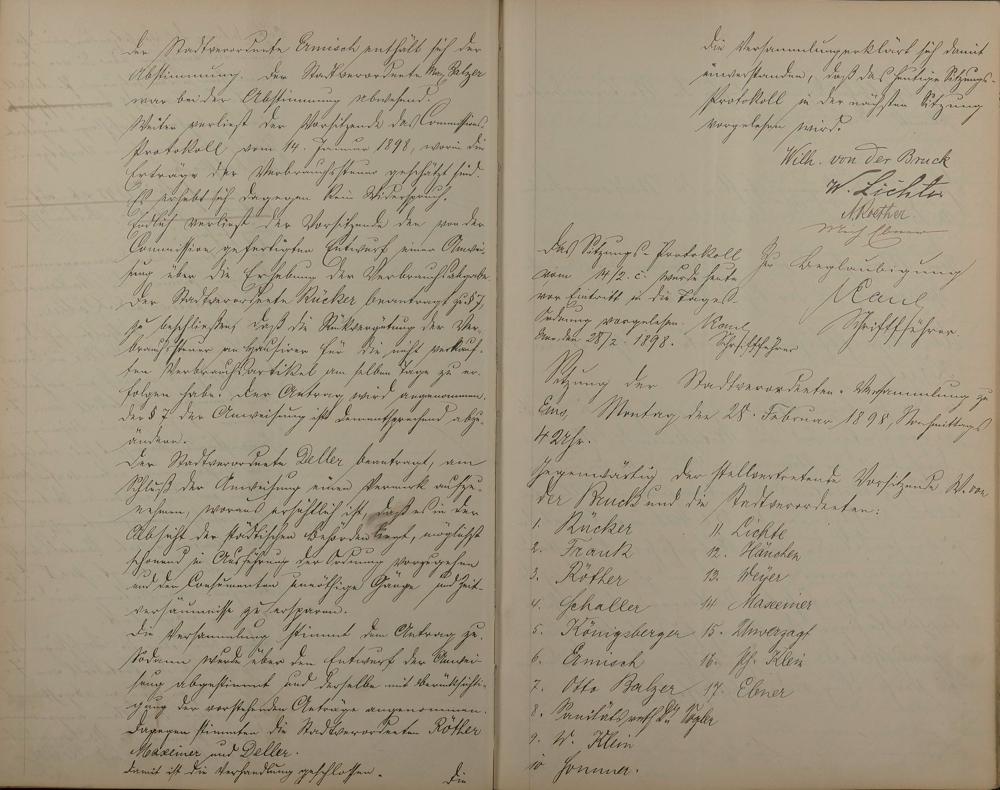 Der Stadtverordnete Ermisch enthält sich der
Abstimmung. Der Stadtverordnete Max Balzer
war bei der Abstimmung abwesend.
Weiter verliest der Vorsitzende das Commissions-
Protokoll vom 14. Januar 1898, worin die
Erträge der Verbrauchssteuer geschätzt sind.
Es erhebt sich dagegen kein Widerspruch.
Endlich verliest der Vorsitzende den von der
Commission gefertigten Entwurf einer Anwei-
sung über die Erhebung der Verbrauchsabgabe.
Der Stadtverordnete Rücker beantragt zu § 7,
zu beschließen, daß die Rückvergütung der Ver-
brauchssteuer an Hausirer für die nicht verkauf-
ten Verbrauchsartikel am selben Tage zu er-
folgen habe. Der Antrag wird angenommen.
Der § 7 der Anweisung ist dementsprechend abzu-
ändern.
Der Stadtverordnete Deller beantragt, am
Schluß der Anweisung einen Vermerk aufzu-
nehmen, woraus ersichtlich ist, daß es in der
Absicht der städtischen Behörden liegt, möglichst
schonend in Ausführung der Ordnung vorzugehen
und den Consumenten unnöthige Gänge und Zeit-
versäumnisse zu ersparen.
Die Versammlung stimmt dem Antrag zu.
Sodann wurde über den Entwurf der Anwei-
sung abgestimmt und derselbe mit Berücksichti-
gung der vorstehenden Anträge angenommen.
Dagegen stimmten die Stadtverordneten Röther
Maxeiner und Deller.
Damit ist die Verhandlung geschlossen.
Die
Die Versammlung erklärt sich damit
einverstanden, daß das heutige Sitzungs-
Protokoll in der nächsten Sitzung
vorgelesen wird.
Wilh. von der Bruck
W. Lichte
A. Roether
Ebner
Das Sitzungs-Protokoll
vom 14/2. c. wurde heute
vor Eintritt in die Tages-
Ordnung vorgelesen.
Ems, den 28/2. 1898.
Kaul
Schriftführer
Zu Beglaubigung
Kaul
Schriftführer
Sitzung der Stadtverordneten-Versammlung zu
Ems, Montag, den 28. Februar 1898, Nachmittags
4 Uhr.
Gegenwärtig der stellvertretende Vorsitzende W. von
der Bruck und die Stadtverordneten:
1. Rücker
2. Frantz
3. Röther
4. Schaller
5. Königsberger
6. Ermisch
7. Otto Balzer
8. Sanitätsrath Dr. Vogler
9. W. Klein
10 Sommer.
11. Lichte
12. Hänchen
13. Weyer
14 Maxeiner
15. Unverzagt
16. Ph. Klein
17. Ebner